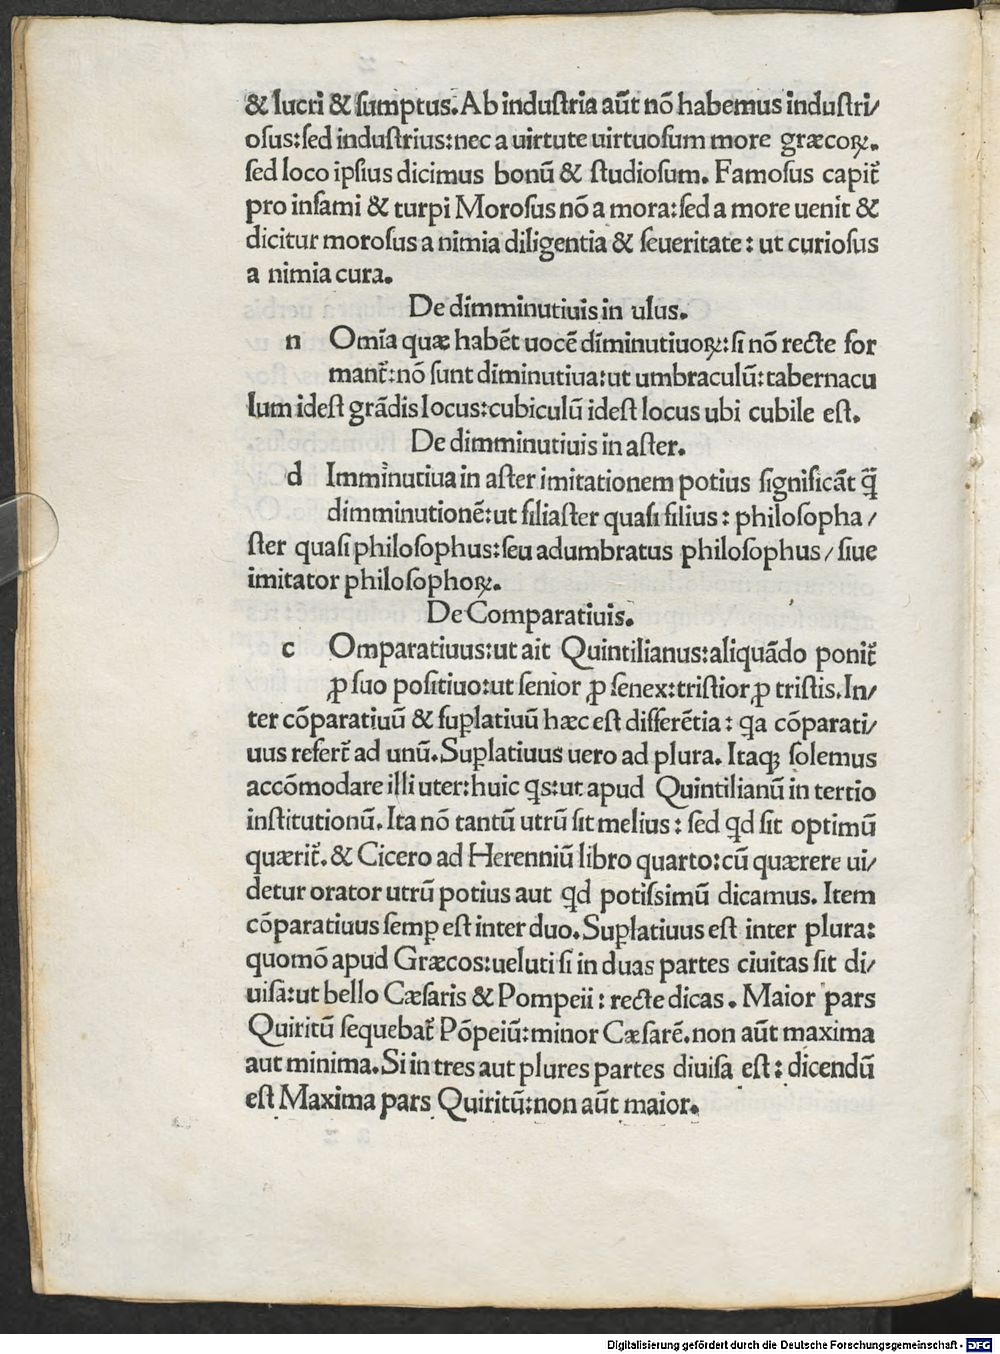 & lucri & ſumptus. Ab induſtria aūt nō habemus induſtri/
oſus: ſed induſtrius: nec a uirtute uirtuoſum more græcoꝝ.
ſed loco ipſius dicimus bonū & ſtudioſum. Famoſus capit᷑
pro infami & turpi Moroſus nō a mora: ſed a more uenit &
dicitur moroſus a nimia diligentia & ſeueritate: ut curioſus
a nimia cura.
De dimminutiuis in ulus.
n Omīa quæ habēt uocē dīminutiuoꝝ: ſi nō recte for
mant᷑: nō ſunt diminutiua: ut umbraculū: tabernacu
lum ideſt grādis locus: cubiculū ideſt locus ubi cubile eſt.
De dimminutiuis in aſter.
d Imminutiua in aſter imitationem potius ſignificāt q̄̃
dimminutionē: ut filiaſter quaſi filius: philoſopha/
ſter quaſi philoſophus: ſeu adumbratus philoſophus/ ſiue
imitator philoſophoꝝ.
De Comparatiuis.
c Omparatiuus: ut ait Quintilianus: aliquādo ponit᷑
ꝓ ſuo poſitiuo: ut ſenior ꝓ ſenex: triſtior ꝓ triſtis. In/
ter cōparatiuū & ſuꝑlatiuū hæc eſt differētia: ꝗa cōparati/
uus refert᷑ ad unū. Suꝑlatiuus uero ad plura. Itaqꝫ ſolemus
accōmodare illi uter: huic ꝗs: ut apud Quintilianū in tertio
inſtitutionū. Ita nō tantū utrū ſit melius: ſed ꝗd ſit optimū
quærit᷑. & Cicero ad Herenniū libro quarto: cū quærere ui/
detur orator utrū potius aut ꝗd potiſſimū dicamus. Item
cōparatiuus ſemꝑ eſt inter duo. Suꝑlatiuus eſt inter plura:
quomō apud Græcos: ueluti ſi in duas partes ciuitas ſit di/
uiſa: ut bello Cæſaris & Pompeii: recte dicas. Maior pars
Quiritū ſequebat᷑ Pōpeiū: minor Cæſarē. non aūt maxima
aut minima. Si in tres aut plures partes diuiſa eſt: dicendū
eſt Maxima pars Quiritū: non aūt maior.
Digitalisierung gefördert durch die Deutsche Forschungsgemeinschaft - DFG